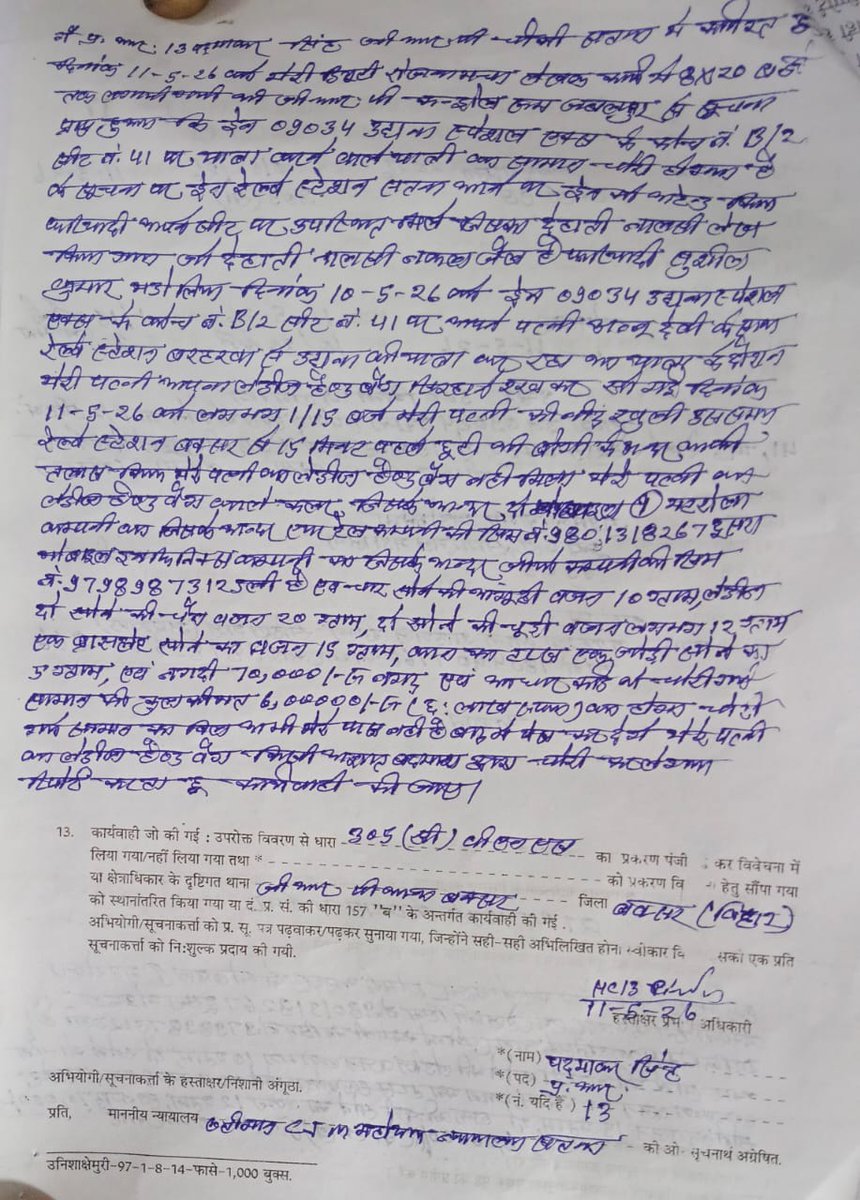 मै प्र. आर. 13 पदमाकर सिंह जी आर पी चौकी सतना मे कार्यरत हूं
दिनांक 11-5-26 को मेरी डियुटी रोजनामचा लेखक कार्य मे 8x20 बजे
जी आर पी कन्ट्रोल रूम जबलपुर से सूचना
प्राप्त हुआ कि ट्रेन 09034 उधना स्पेशल एक्स के कोच नं. B/2
सीट नं. 41 पर यात्रा करने वाले यात्री का सामान चोरी होगया है
के सूचना पर ट्रेन रेल्वे स्टेशन सतना आने पर ट्रेन को अटेण्ड किया
फरियादी अपने सीट पर उपस्थित मिले जिसका देहाती नालसी लेख
किया गया जो देहाती नालसी नकल जैल है फरियादी सुशील
कुमार दिनांक 10-5-26 को ट्रेन 09034 उधना स्पेशल
एक्स के कोच नं. B/2 सीट नं. 41 पर अपने पत्नी अन्नू देवी के साथ
रेल्वे स्टेशन से उधना की यात्रा कर रहा था यात्रा के दौरान
मेरी पत्नी अपना लेडीज हैण्ड बैग सिरहाने रखकर सो गई दिनांक
11-5-26 को लगभग 1/15 बजे मेरी पत्नी की नींद खुली उस समय
रेल्वे स्टेशन बक्सर से 15 मिनट पहले टूटी की बोगी के अन्दर काफी
तलाश किया मेरे पत्नी का लेडीज हैण्ड बैग नही मिला मेरे पत्नी का
लेडीज हैण्ड बैग काले कलर जिसके अन्दर दो मोबाइल (1) मटरोला
कम्पनी का जिसके अन्दर एयरटेल कम्पनी की सिम नं. 9801318267 दूसरा
मोबाइल इनफिनिक्स कम्पनी का जिसके अन्दर जीओ कम्पनी की सिम
नं. 9798987312 डली है एवं चार सोने की अंगूठी वजन 10 ग्राम, लेडीज
दो सोने की चैन वजन 20 ग्राम, दो सोने की चूड़ी वजन लगभग 12 ग्राम
एक ब्रासलेट सोने का वजन 15 ग्राम, कान का एक जोड़ी सोने का
5 ग्राम, एवं नगदी 70,000/-रु नगद एवं आधार कार्ड थे चोरी गये
सामान की कुल कीमत 6,00000/-रु (छः लाख रुपये) का होगा चोरी
गये सामान का बिल अभी मेरे पास नही है बाद मे पेश कर देगें मेरे पत्नी
का लेडीज हैण्ड बैग किसी अज्ञात बदमाश द्वारा चोरी कर लेगया
रिपोर्ट करता हूं कार्यवाही की जाए।
13. कार्यवाही जो की गई : उपरोक्त विवरण से धारा 305 (सी) बी एन एस का प्रकरण पंजी कर विवेचना में
लिया गया/नहीं लिया गया तथा * को प्रकरण वि हेतु सौंपा गया
या क्षेत्राधिकार के दृष्टिगत थाना जी आर पी थाना बक्सर को जिला बक्सर (बिहार)
को स्थानांतरित किया गया या दं. प्र. सं. की धारा 157 "ब" के अन्तर्गत कार्यवाही की गई .
अभियोगी/सूचनाकर्त्ता को प्र. सू. पत्र पढ़वाकर/पढ़कर सुनाया गया, जिन्होंने सही-सही अभिलिखित होना स्वीकार कि सको एक प्रति
सूचनाकर्त्ता को निःशुल्क प्रदाय को गयी.
HC13
11-5-26
हस्ताक्षर प्रभ अधिकारी
*(नाम) पदमाकर सिंह
*(पद) प्र. आर.
*(नं. यदि हैं) 13
अभियोगी/सूचनाकर्त्ता के हस्ताक्षर/निशानी अंगूठा.
प्रति, माननीय न्यायालय श्रीमान CJM महोदय न्यायालय सतना को ओर सूचनार्थ अग्रेषित.
उनिशाक्षेमुरी-97-1-8-14-फासे-1,000 बुक्स.